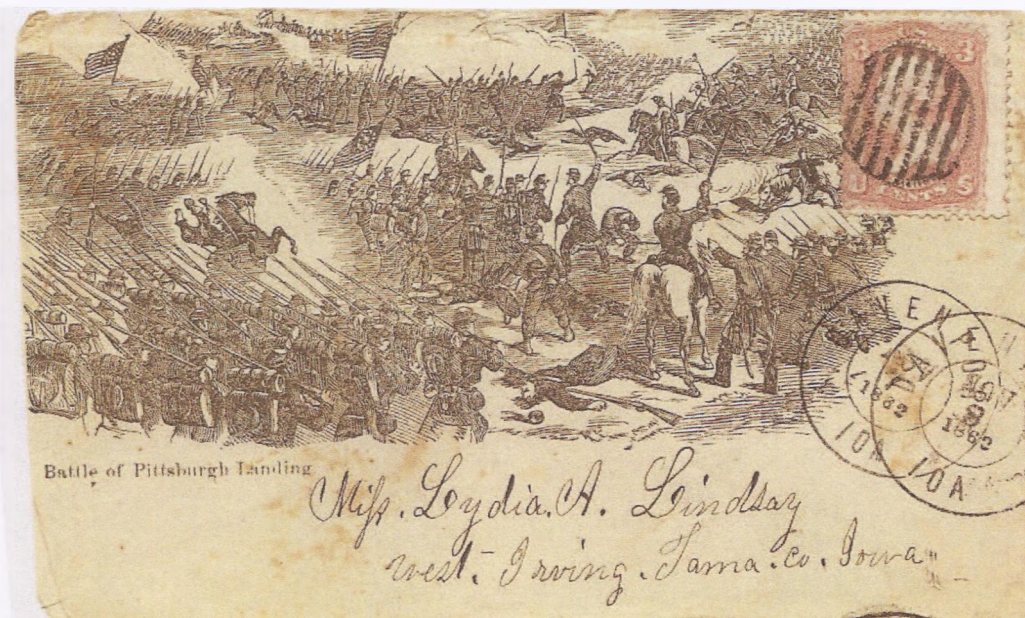 3 US 3
U CENTS S
DAVENPORT
1862
IOA
1862
IOA
Battle of Pittsburgh Landing
Miss. Lydia. A. Lindsay
West. Irving. Tama. co. Iowa